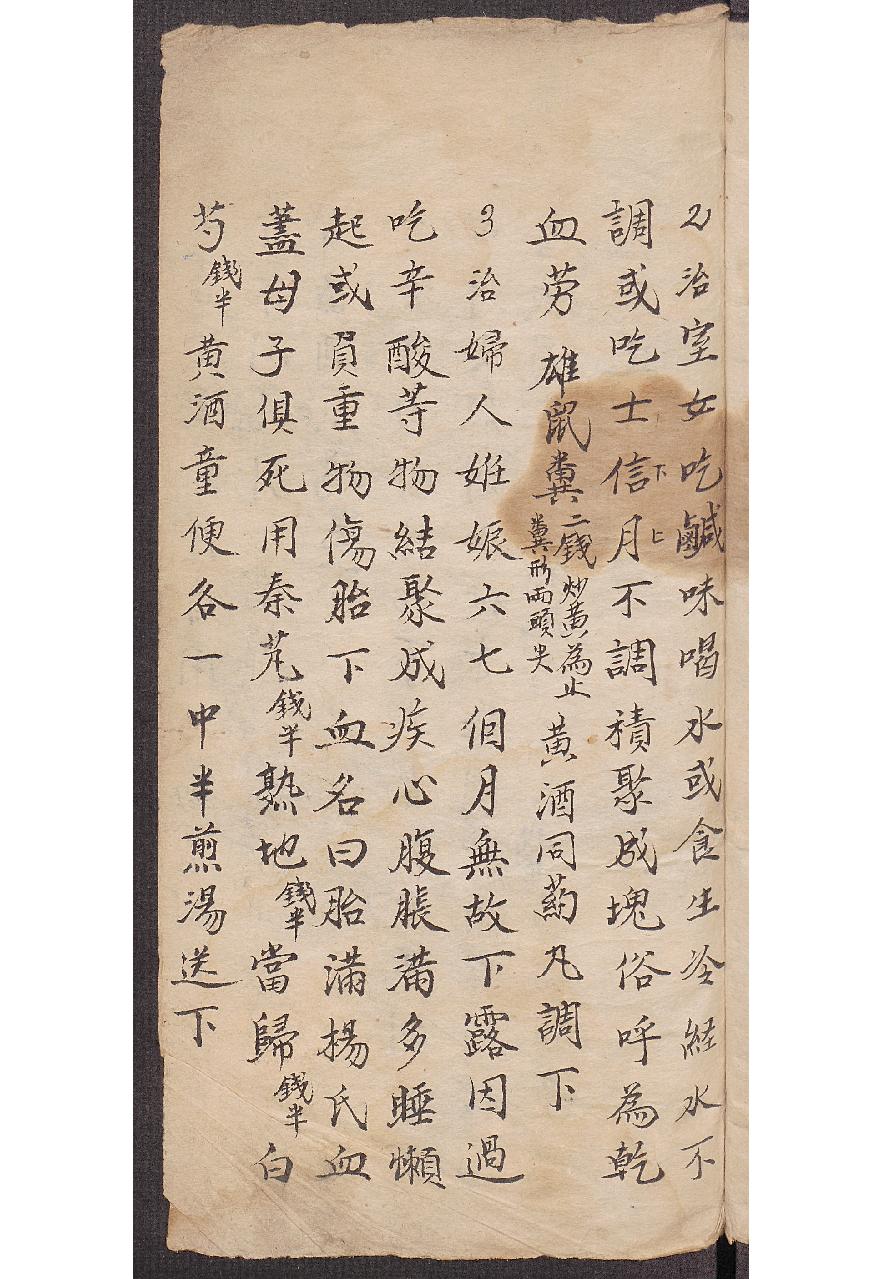 2治室女吃鹹味喝水或食生冷經水不
調或吃士信下月上不調積聚成塊俗呼為乾
血劳 雄鼠糞二錢炒黄為止糞形兩頭尖 黄酒同药凡調下
3治婦人姙娠六七個月無故下露因過
吃辛酸等物結聚成疾心腹脹满多睡懶
起或負重物傷胎下血名曰胎满楊氏血
蓋母子俱死用秦艽錢半熟地錢半當歸錢半白
芍錢半黄酒童便各一中半煎湯送下